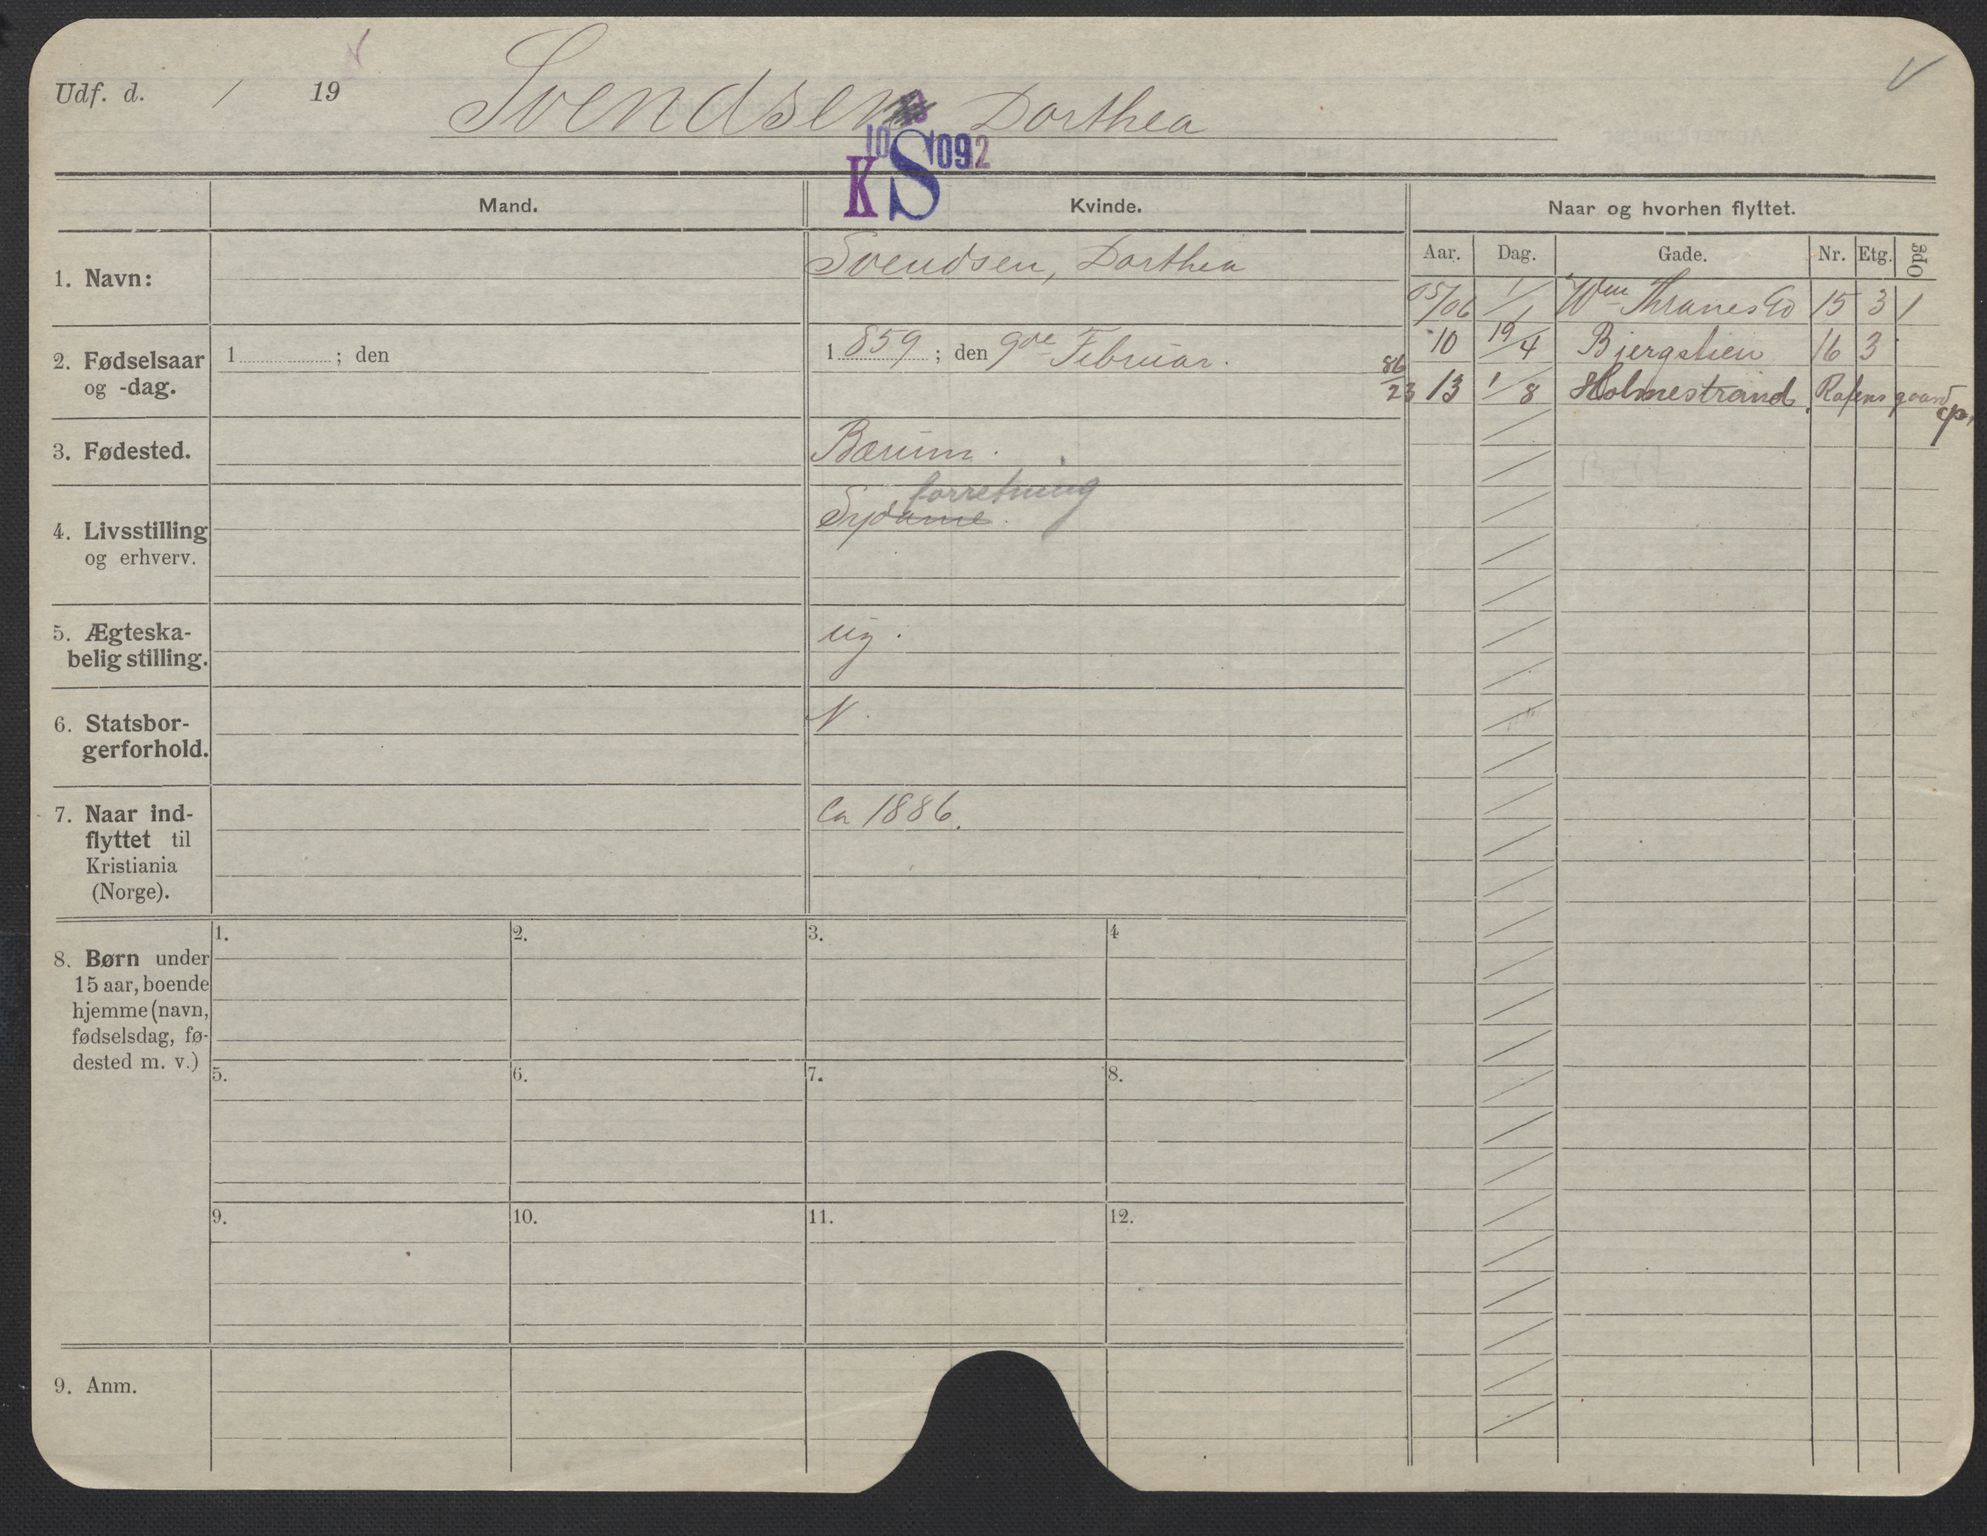 Udf. d. / 19
Svendsen Dorthea
K S 10 092
Mand.
Kvinde.
Naar og hvorhen flyttet.
Aar. Dag. Gade. Nr. Etg. Opg
1. Navn:
Svendsen, Dorthea
05/06 1/1 Wm Thranes G 15 3 1
10 19/4 Bjergstien 16 3
86/23 13 1/8 Holmestrand. gaard
2. Fødselsaar
og -dag.
1 ; den
1 859 ; den 9de Februar.
3. Fødested.
Bærum.
4. Livsstilling
og erhverv.
forretning
Sydame.
5. Ægteska-
belig stilling.
ug.
6. Statsbor-
gerforhold.
N.
7. Naar ind-
flyttet til
Kristiania
(Norge).
Ca 1886.
8. Børn under
15 aar, boende
hjemme (navn,
fødselsdag, fø-
dested m. v.)
1. 2. 3. 4
5. 6. 7. 8.
9. 10. 11. 12.
9. Anm.